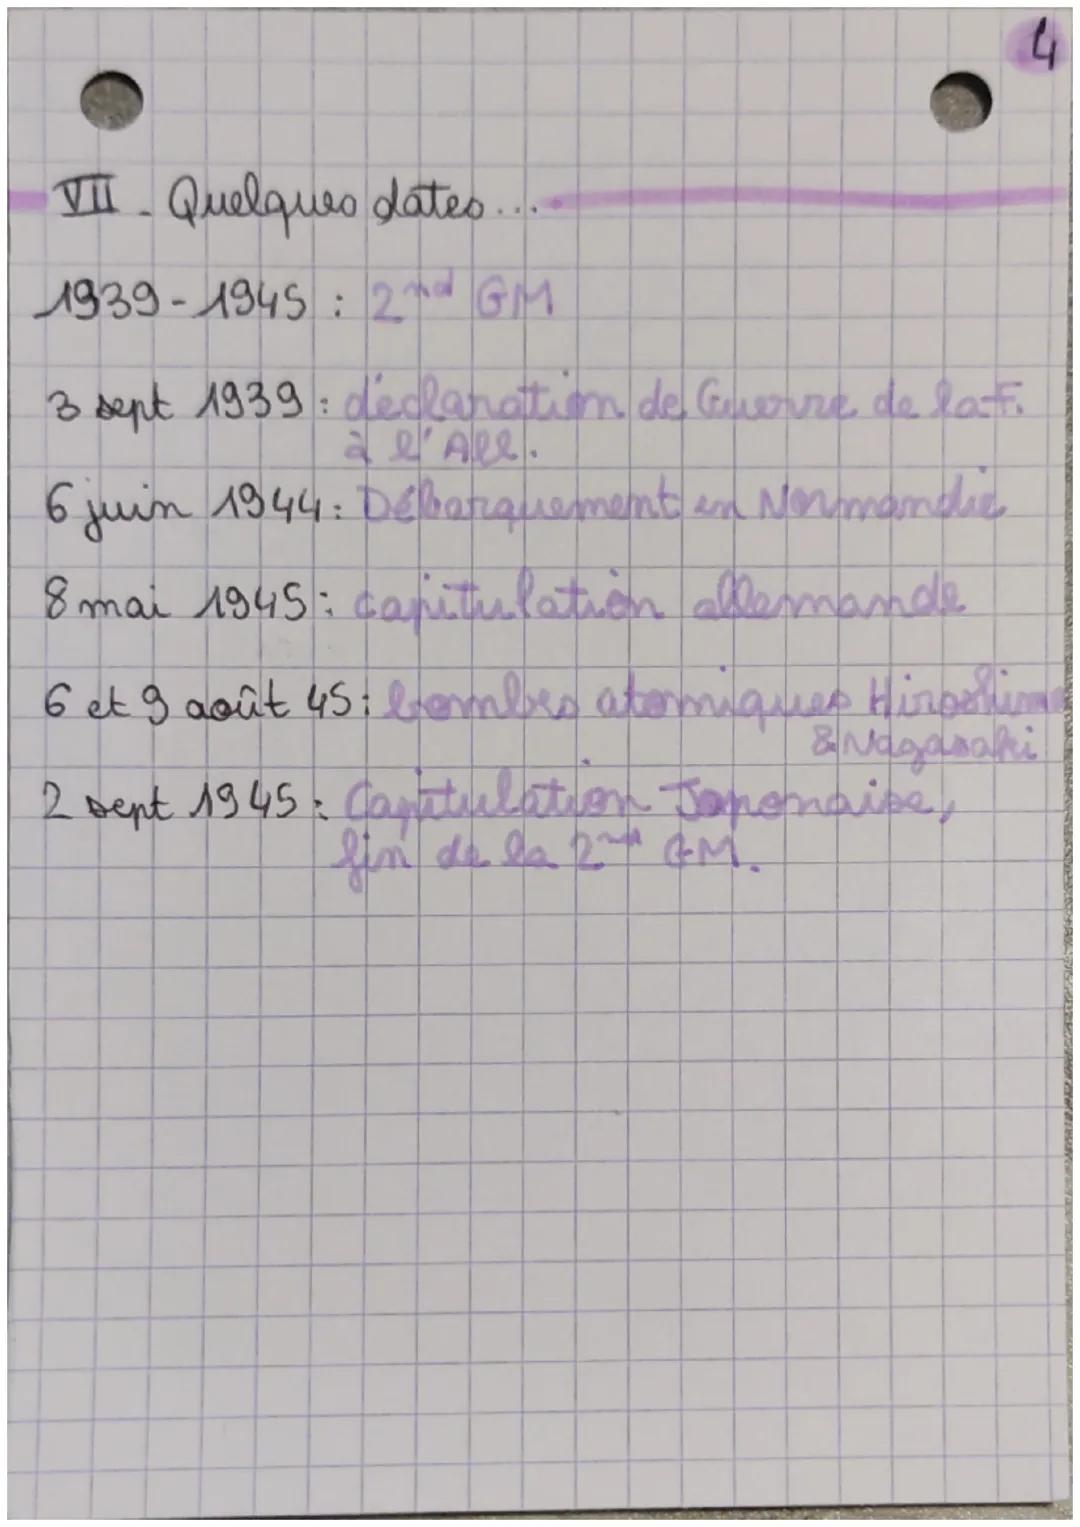 4
VII - Quelques dates...
1939-1945 : 2nd GM
3 sept 1939 : déclaration de Guerre de la F.
à l'All.
6 juin 1944 : Débarquement en Normandie
8 mai 1945 : capitulation allemande
6 et 9 août 45 : bombes atomiques Hiroshima
& Nagasaki
2 sept 1945 : Capitulation Japonaise,
fin de la 2nd GM.